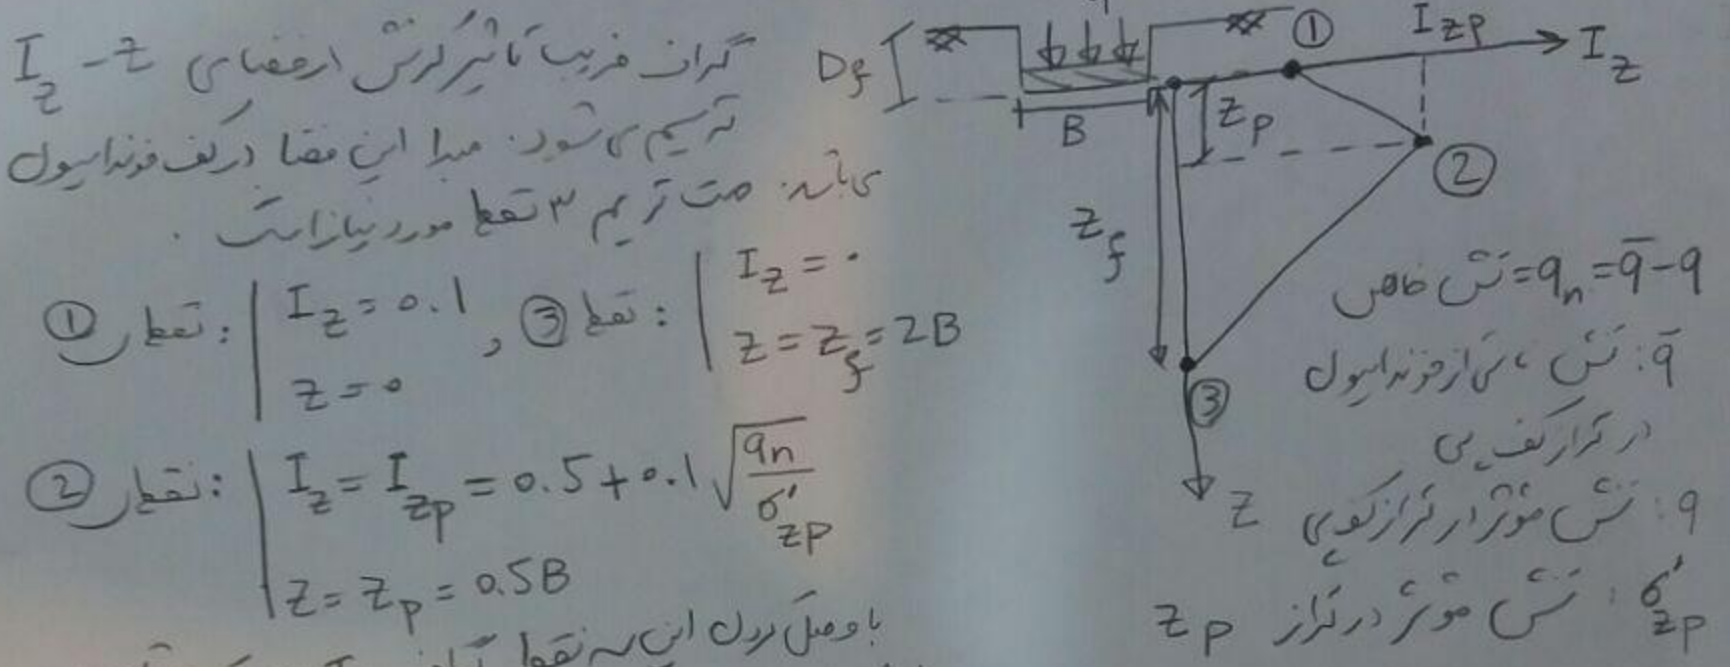 گراف ضریب تاثیر کرنش از فضای I_z - z
ترسیم می شود. مبدا این فضا در کف فونداسیون
می باشد. جهت ترسیم ۳ نقطه مورد نیاز است.
نقطه ①: I_z = 0.1
z = 0
, نقطه ③: I_z = 0
z = z_f = 2B
نقطه ②: I_z = I_zp = 0.5 + 0.1 √(q_n / σ'_zp)
z = z_p = 0.5B
با وصل کردن این سه نقطه
D_f
B
①
I_zp
I_z
z_p
②
z_f
③
z
تنش خالص = q_n = q̄ - q
q̄: تنش ناشی از فونداسیون
در تراز کف پی
q: تنش موثر در تراز کف پی
σ'_zp: تنش موثر در تراز z_p